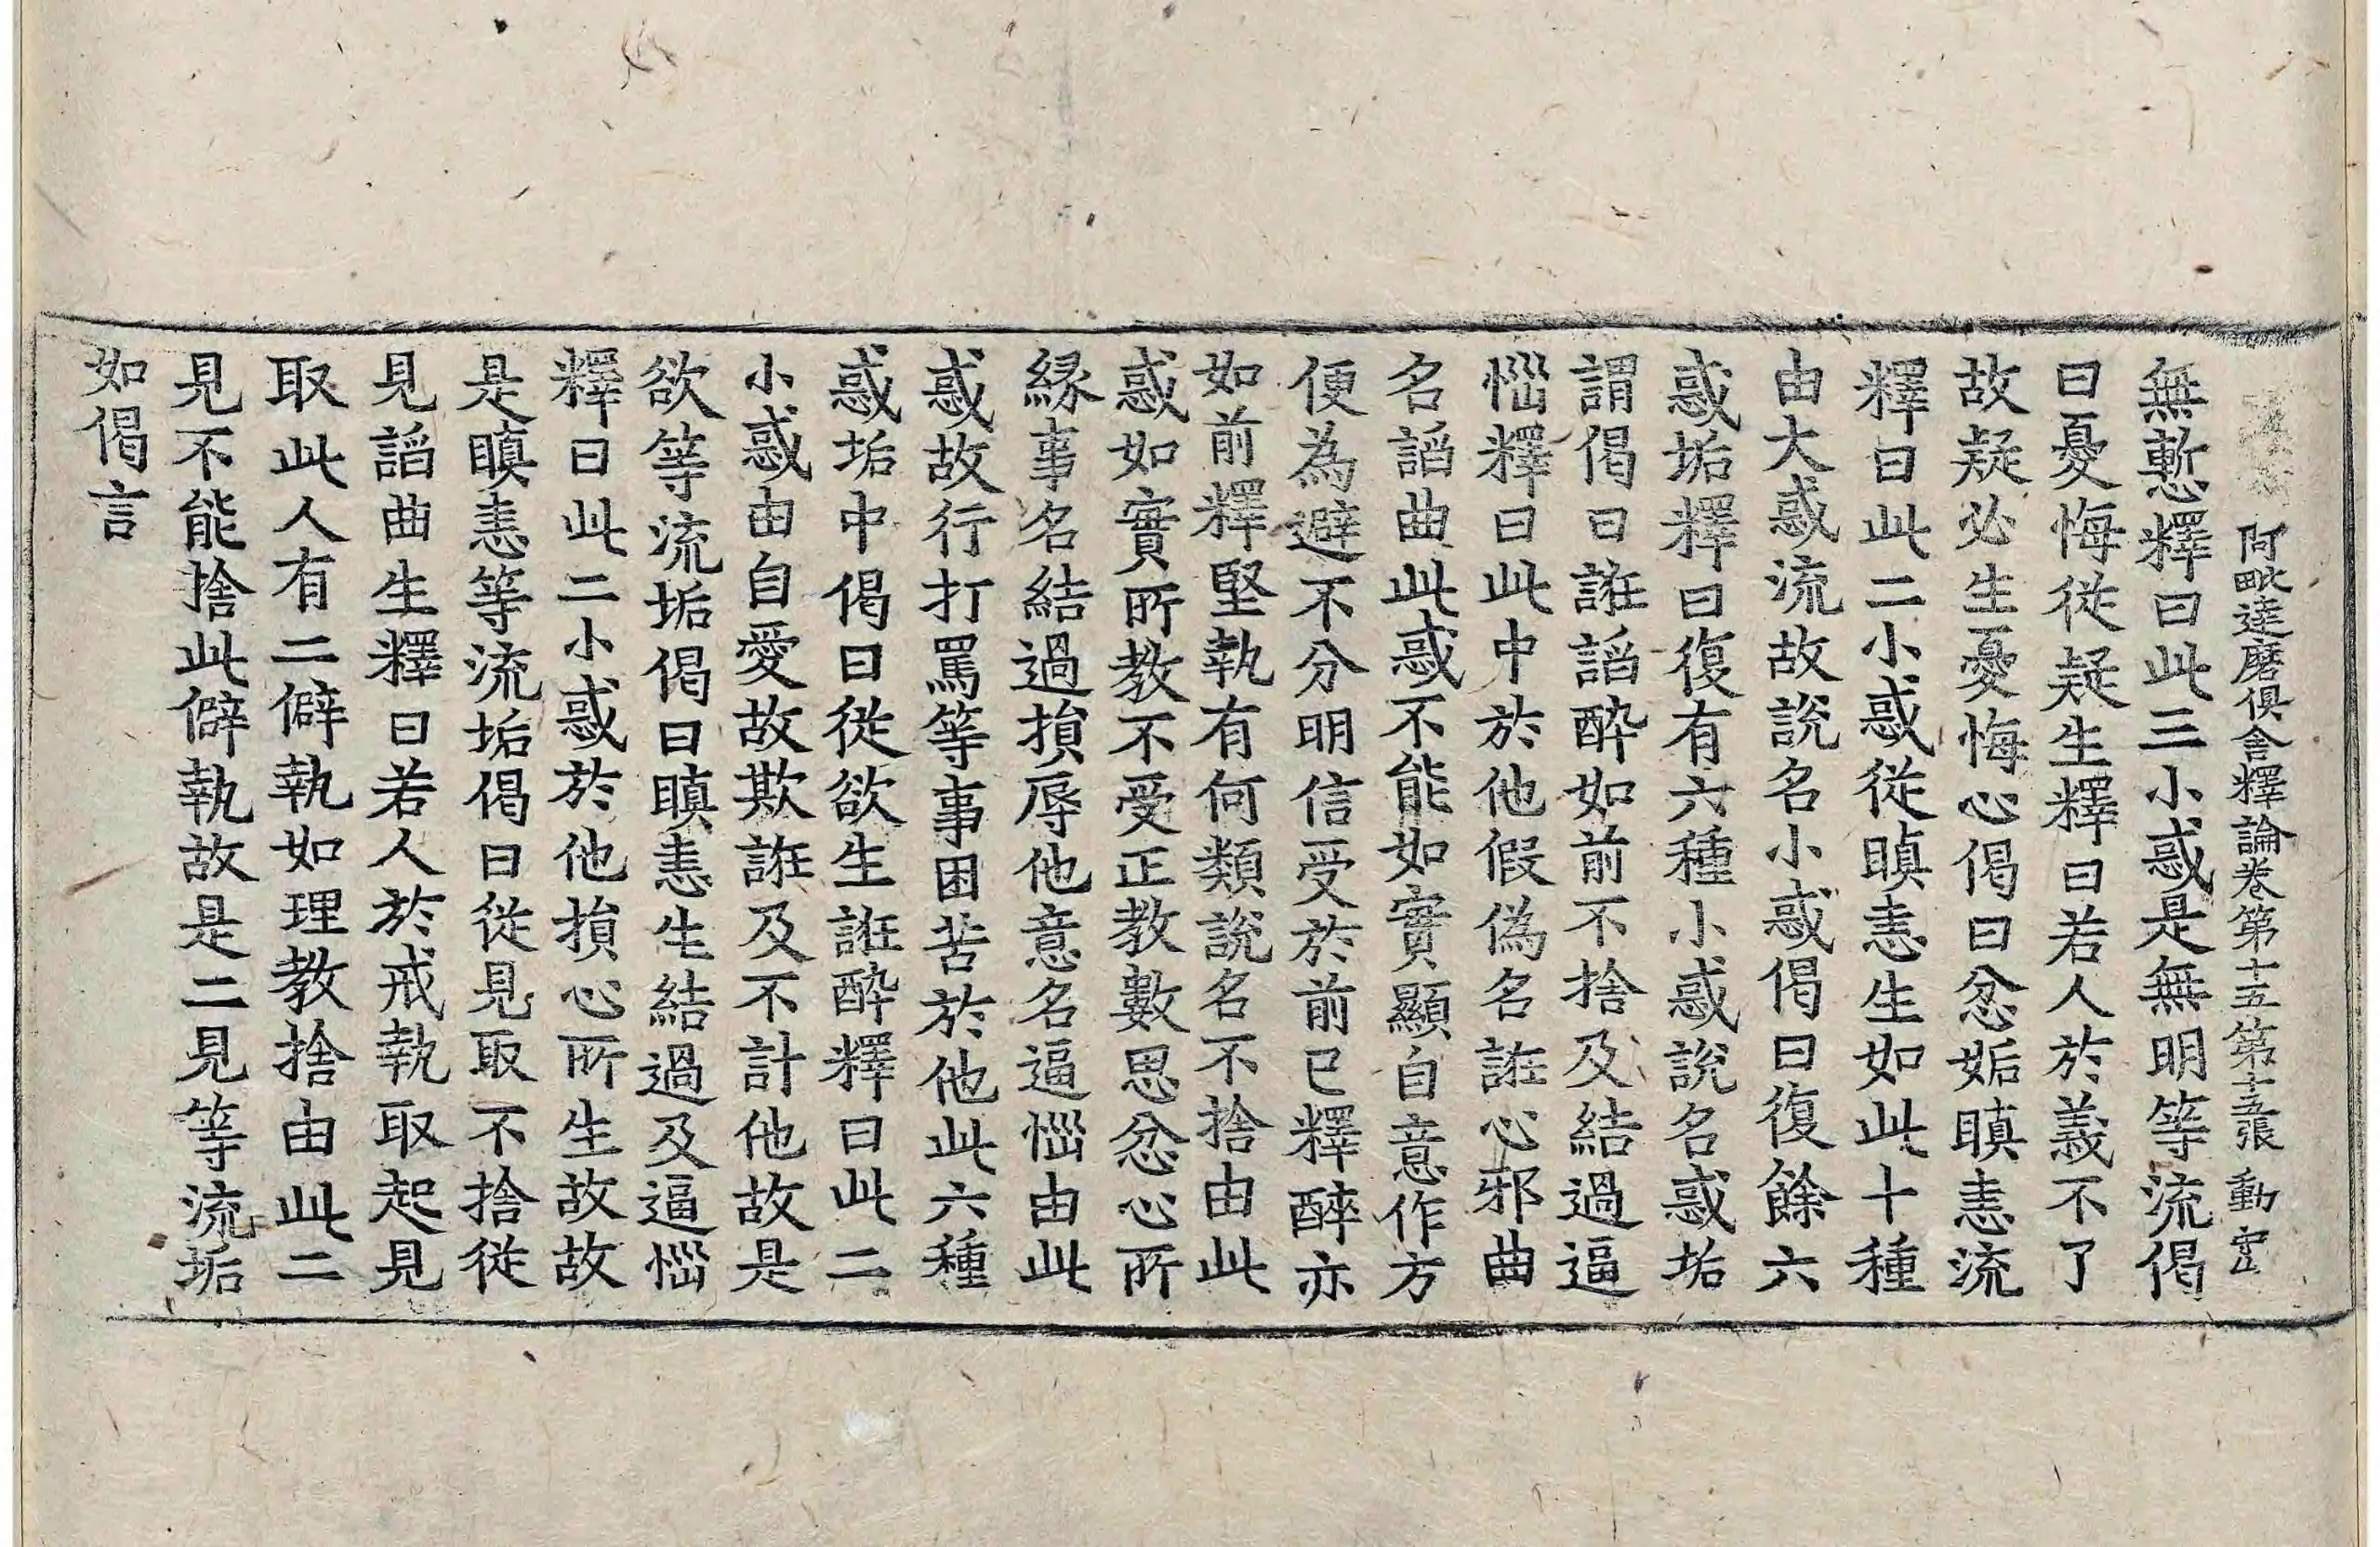 阿毗達磨俱舍釋論卷第十五第十五張 動
無慙釋曰此三小惑是無明等流偈
曰憂悔從疑生釋曰若人於義不了
故疑必生憂悔心偈曰忿姤瞋恚流
釋曰此二小惑從瞋恚生如此十種
由大惑流故說名小惑偈曰復餘六
惑垢釋曰復有六種小惑說名惑垢
謂偈曰誑謟醉如前不捨及結過逼
惱釋曰此中於他假偽名誑心邪曲
名謟曲此惑不能如實顯自意作方
便為避不分明信受於前已釋醉亦
如前釋堅執有何類說名不捨由此
惑如實所教不受正教數思忿心所
緣事名結過損辱他意名逼惱由此
惑故行打罵等事困苦於他此六種
惑垢中偈曰從欲生誑醉釋曰此二
小惑由自愛故欺誑及不計他故是
欲等流垢偈曰瞋恚生結過及逼惱
釋曰此二小惑於他損心所生故故
是瞋恚等流垢偈曰從見取不捨從
見謟曲生釋曰若人於戒執取起見
取此人有二僻執如理教捨由此二
見不能捨此僻執故是二見等流垢
如偈言